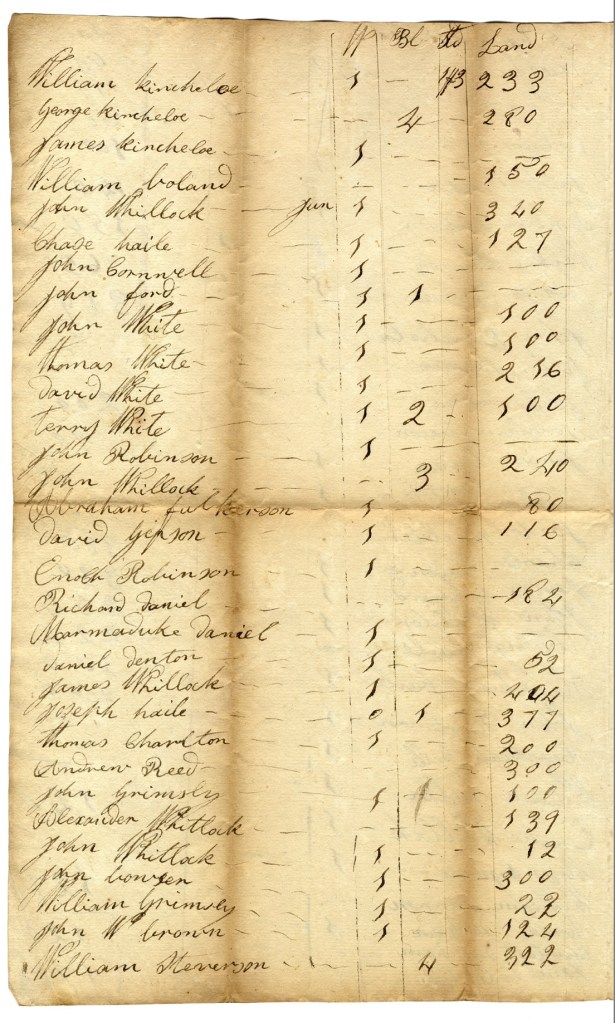 W Bl Sd Land
William Kincheloe - 1 - 43 233
George Kincheloe - - 4 - 280
James Kincheloe - 1 - -
William Boland - - - - 150
John Whillock - Jun 1 - - 340
Chase haile - - 1 - - 127
John Cornwell - - 1 - - -
John ford - - 1 1 - -
John White - - 1 - - 100
Thomas White - - 1 - - 100
David White - - 1 - - 216
terry White - - 1 2 - 100
John Robinson - - 1 - - -
John Whillock - - - 3 - 240
Abraham fulkerson 1 - - 80
David Gipson - - 1 - - 116
Enoch Robinson 1 - - -
Richard Daniel - - - - 182
Marmaduke Daniel - 1 - - -
Daniel Denton - - 1 - - 52
James Whillock - - 1 - - 404
Joseph haile - - 0 1 - 377
thomas Charlton 1 - - 200
Andrew Reed - - - - 300
John Grimsly - - 1 1 - 100
Alexander Whitlock - - - 139
John Whitlock - - 1 - - 12
John bowen - - 1 - - 300
William Grimsly - 1 - - 22
John W brown - - 1 - - 124
William Steverson - - 4 - 322